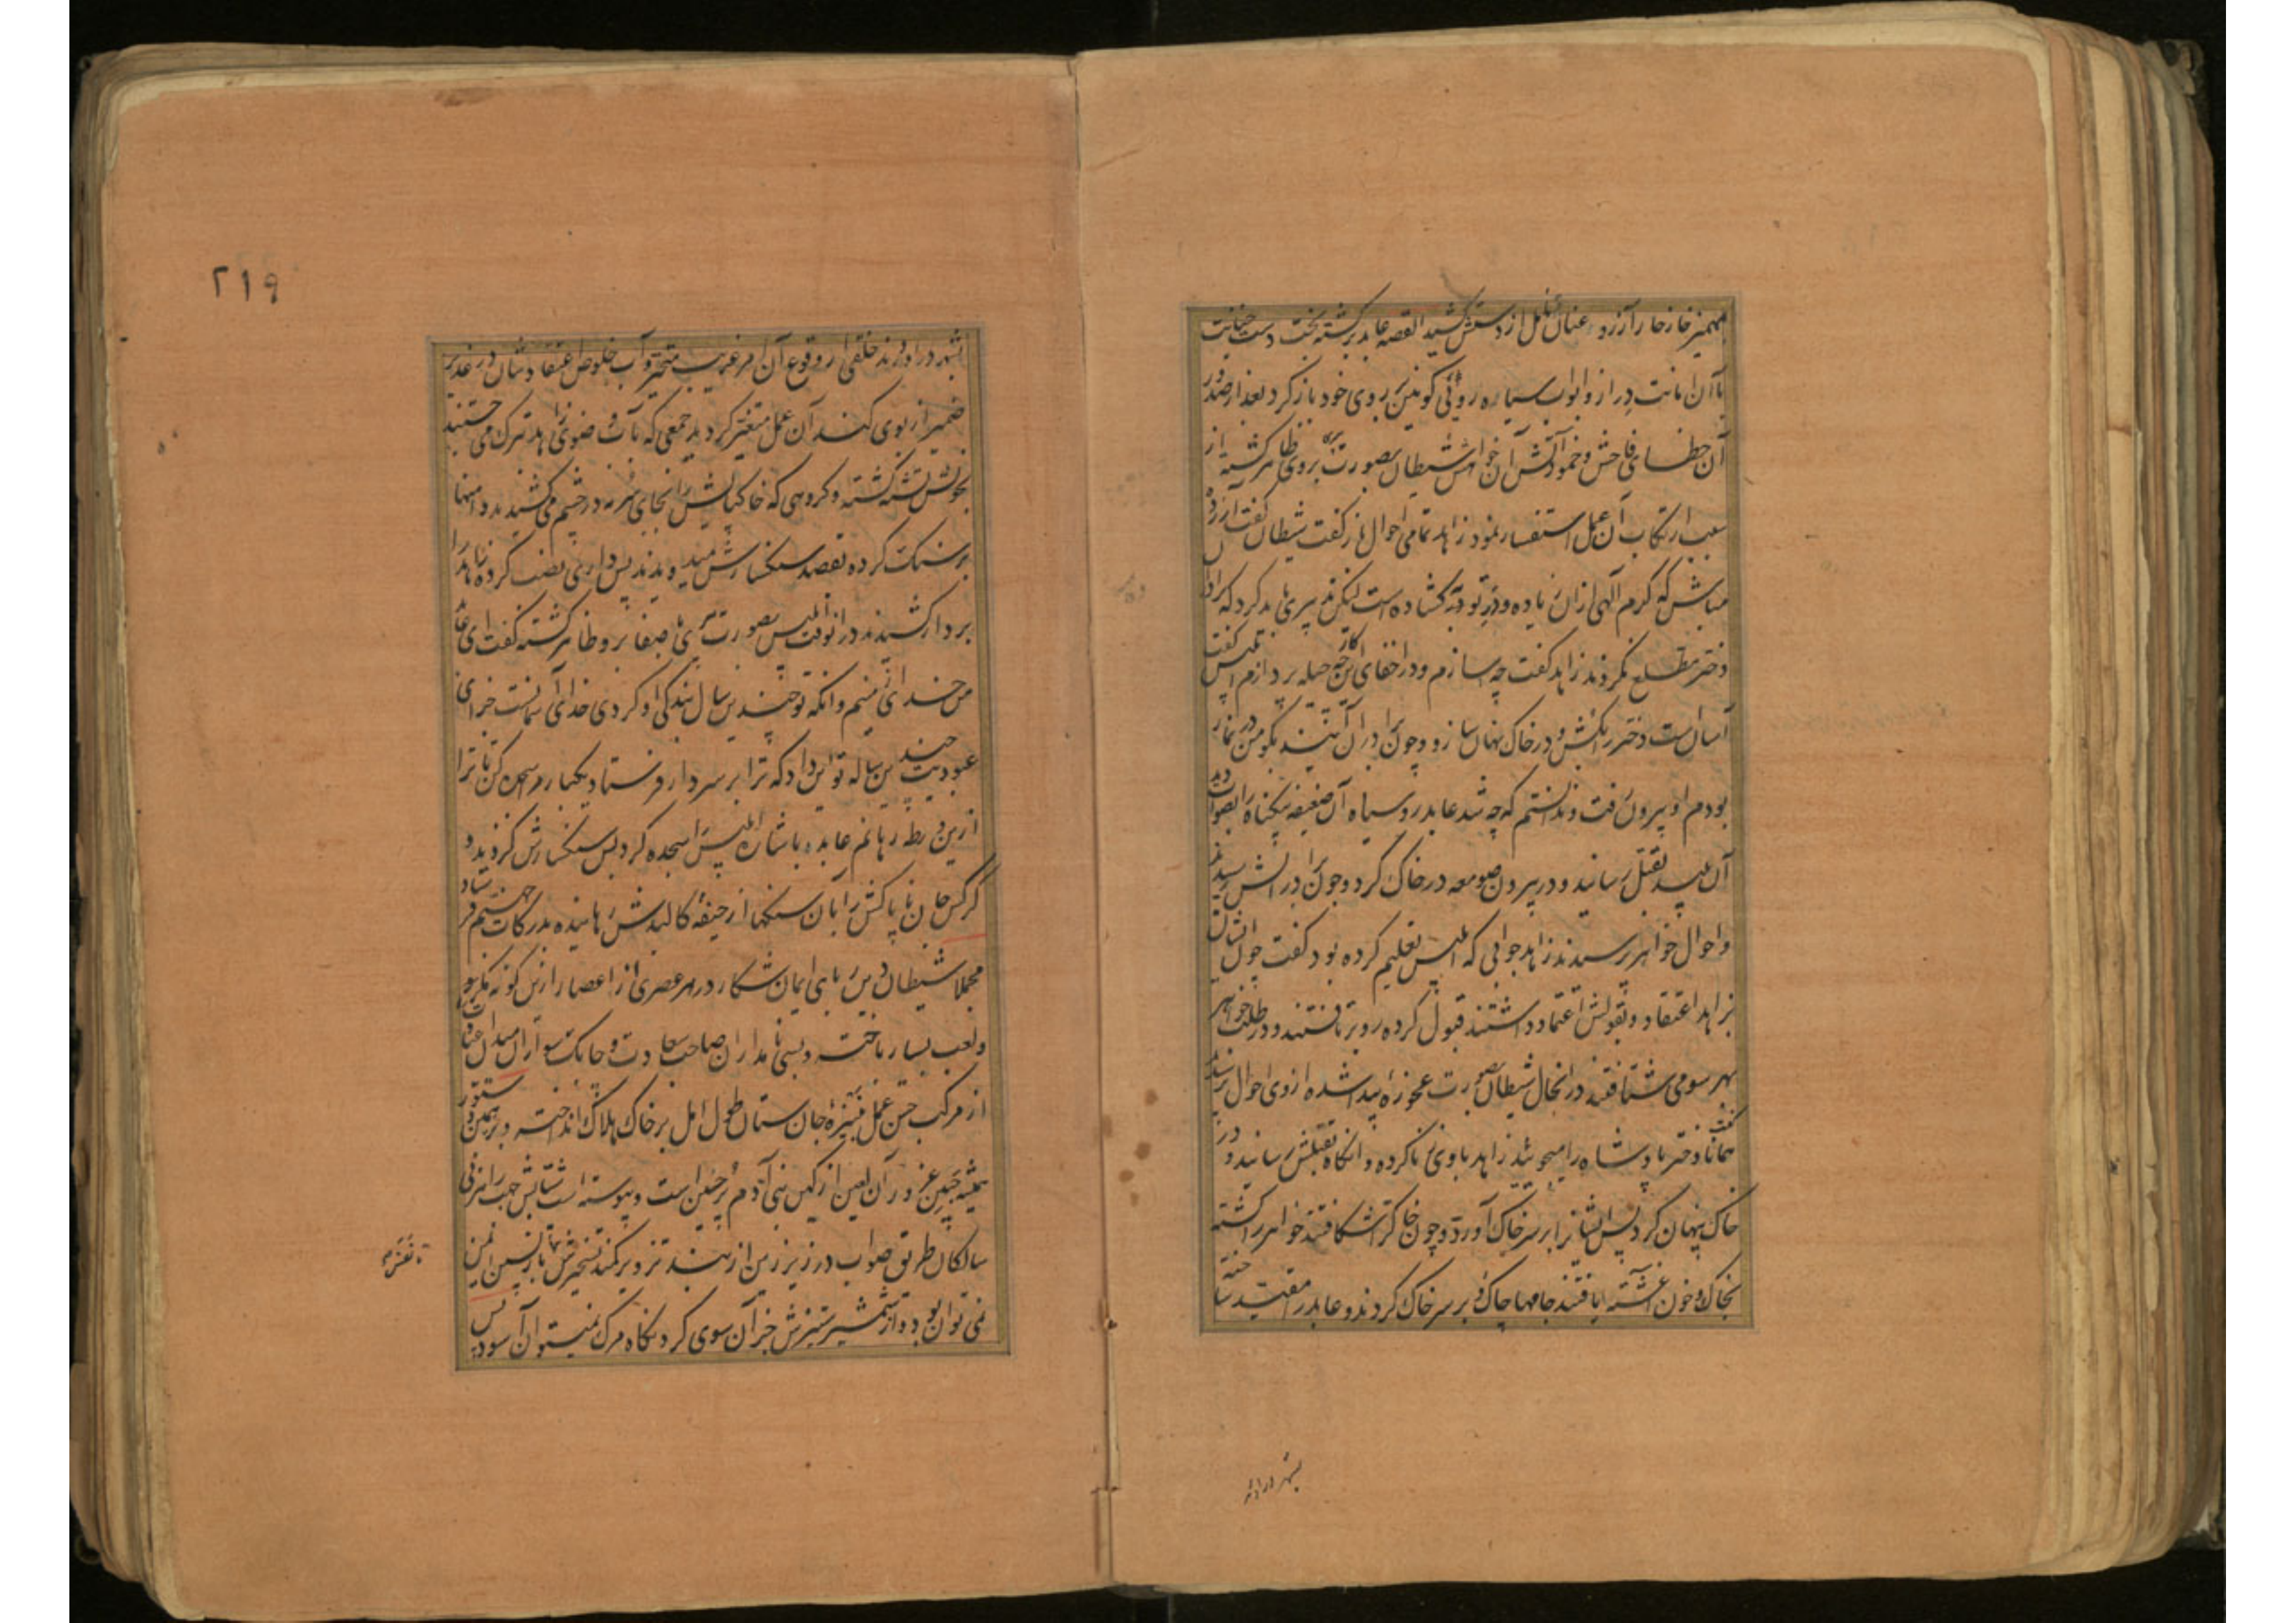 مهمیز خارخار آرزو عنان تامل از دستش کشید القصه عابد برگشته بخت دست خیانت
با آن امانت دراز و ابواب سیاه روئی کونین بروی خود باز کرد بعد از صدور
آن خطای فاحش و خمود آتش آن خواهش شیطان بصورت بروی ظاهر گشته از
سبب ارتکاب آن عمل استفسار نمود زاهد تمامی احوال باز گفت شیطان گفت آزرده
مباش که کرم الهی ازان زیاده و در توبه گشاده است لیکن تدبیری باید کرد که برادران
دختر مطلع نگردند زاهد گفت چه سازم و در اخفای این کار چه حیله پردازم ابلیس گفت
آسان است دختر را بکش و در خاک پنهان ساز و چون برادران آیند بگو من در نماز
بودم او بیرون رفت و ندانستم که چه شد عابد رو سیاه آن ضعیفه بیگناه را بصوابدید
آن پلید بقتل رسانید و در بیرون صومعه در خاک کرد و چون برادرانش رسیدند
و احوال خواهر پرسیدند زاهد جوابی که ابلیس تعلیم کرده بود گفت چون ایشان
بزاهد اعتقاد و بقولش اعتماد داشتند قبول کرده رو برتافتند و در طلب خواهر
بهر سو می شتافتند در انحال شیطان بصورت عجوزه پیدا شده ازوی احوال پرسیدند
گفت همانا دختر پادشاه را میجوئید زاهد باوی زنا کرده و انگاه بقتلش رسانید و در
خاک پنهان کرد پس ایشانرا بر سر خاک آورد و چون خاک را شکافتند خواهر را کشته
بخاک و خون آغشته یافتند جامها چاک و بر سر خاک کردند و عابد را مقید ساخته
بشهر در اوردند
۲۱۹
بشهر در اوردند خلقی از وقوع آن امر غریب متحیر و آب خلوص اعتقادشان در غدیر
ضمیر از بوی گند آن عمل متغیر گردید جمعی که بآب وضوی زاهد تبرک می جستند
بخونش تشنه گشته و گروهی که خاک پایش را بجای سرمه در چشم می کشیدند دامنها
پر سنگ کرده بقصد سنگسارش میدویدند پس داری نصب کرده زاهد را
بر دار کشیدند در انوقت ابلیس بصورت پیری با صفا برو ظاهر گشته گفت ای عابد
من خدای زمینم و انکه تو چندین سال بندگی او کردی خدای آسمانست جزای
عبودیت چندین ساله تو این داد که ترا بر سر دار فرستاد یکبار مرا سجده کن تا ترا
ازین ورطه رهانم عابد باشاره ابلیس را سجده کرد پس سنگسارش کردند و
گرگس جان ناپاکش را بآن سنگها از جیفه کالبدش رهانیده بدرکات جهنم فرستاد
مجملا شیطان دین ربای ایمان شکار در هر عصری از اعصار ازین گونه مکر و
لعب بسیار باخته و بسی نامداران صاحب سعادت و چابک سواران میدان
از مرکب حسن عمل بنیزه جان ستان طول امل بر خاک هلاک انداخته و
همیشه جبین غرور آن لعین از کین بنی آدم پر چین است و پیوسته است
سالکان طریق صواب در زیر زمین از بند تزویر کمند تسخیرش تا بازپسین ایمن
نمی توان بود و از شمشیر ستیزش جز آن سوی کردنگاه مرگ نمیتوان آسود پس